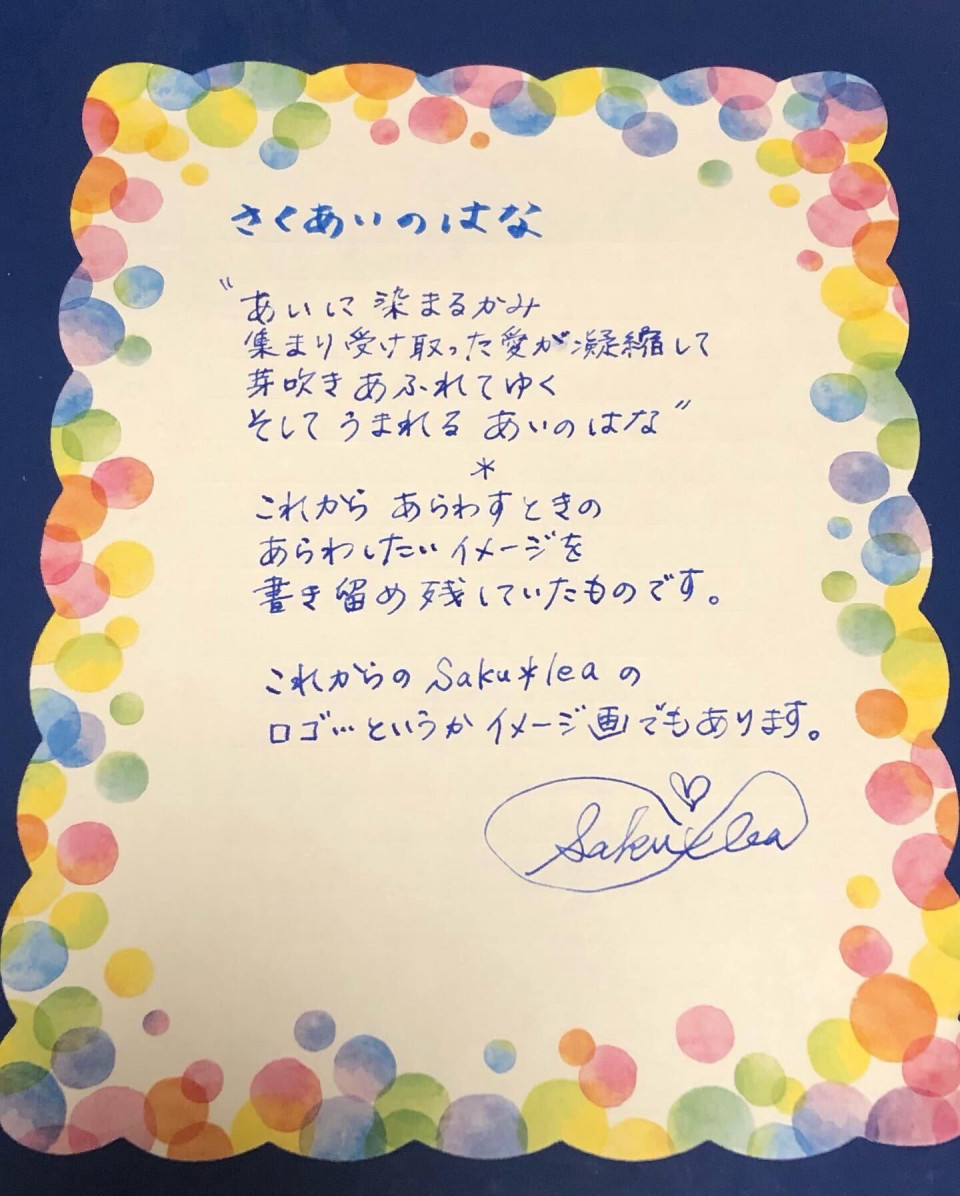 さくあいのはな
〝あいに 染まるかみ
集まり受け取った愛が凝縮して
芽吹き あふれてゆく
そして うまれる あいのはな〞
*
これから あらわすときの
あらわしたい イメージを
書き留め残していたものです。
これからの Saku*lea の
ロゴ…というか イメージ画でもあります。
Saku*lea